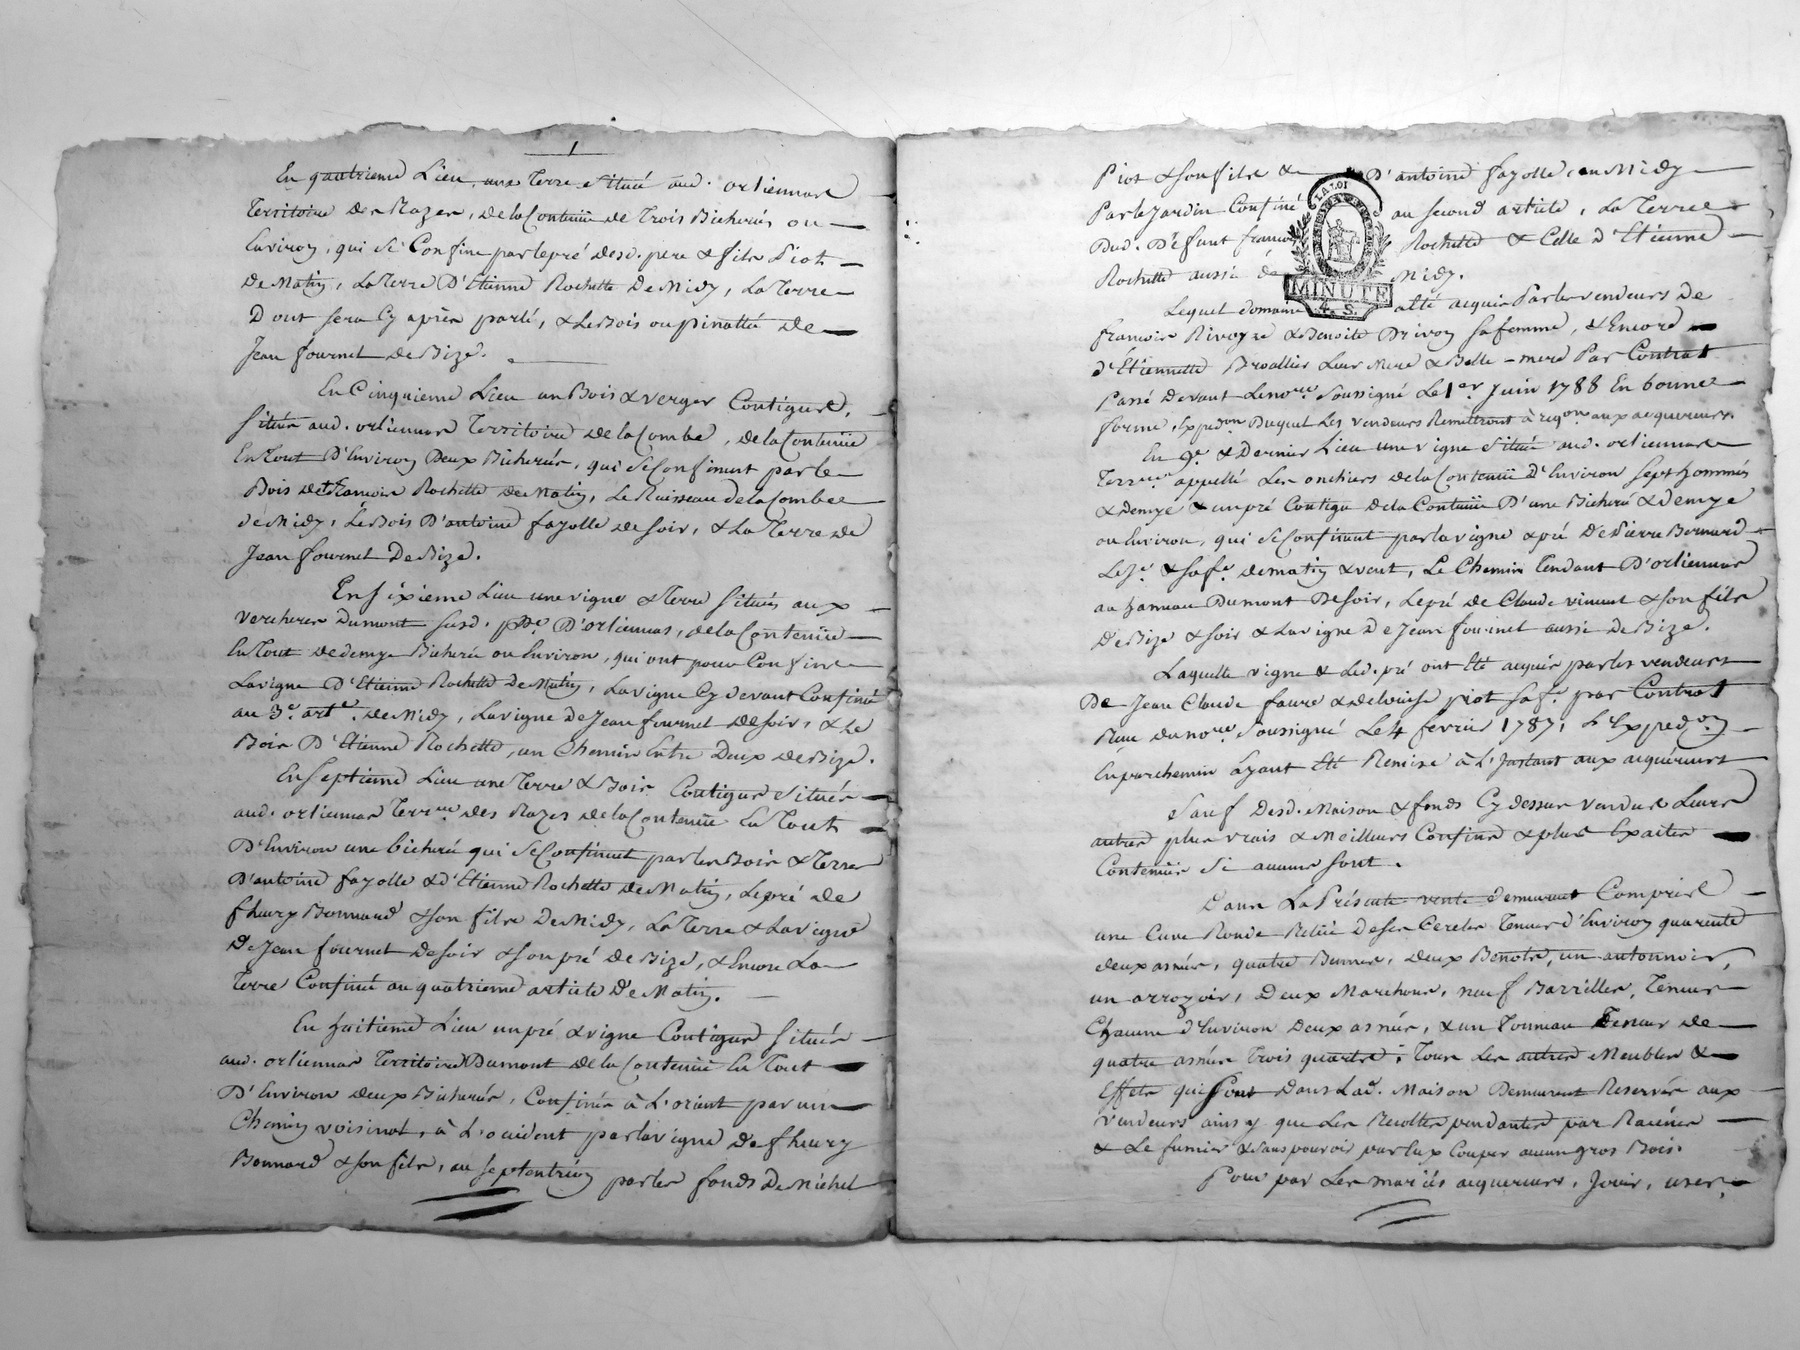 1
En quatrieme Lieu, une Terre Située aud. orliennas
Territoire des Razes, de la Contenüe de Trois Bicherés ou
Environ, qui se Confine par le pré desd. pere & fils Piot
De Matin, La Terre D'Etienne Rochette De Midy, La Terre
Dont sera Cy après parlé, & Le Bois ou pinatté de
Jean fournet de Bize.
En Cinquieme Lieu un Bois & verger Contigus,
Situés aud. orliennas Territoire de la Combe, de la Contenüe
En Tout D'Environ Deux Bicherés, qui se Confinent par le
Bois de francois Rochette de Matin, Le Ruisseau de la Combe
de Midy, Le Bois D'antoine fayolle de soir, & La Terre de
Jean fournet De Bize.
En sixieme Lieu une vigne & Terre situés aux
vercheres Dumont susd. psse. D'orliennas, de la Contenüe
En Tout de demye Bicheré ou Environ, qui ont pour Confins
La vigne D'Etienne Rochette De Matin, La vigne Cy devant Confinée
au 3e. arte. de Midy, La vigne de Jean fournet de soir, & Le
Bois D'Etienne Rochette, un Chemin Entre Deux de Bize.
En septieme Lieu une Terre & Bois Contigus Situés
aud. orliennas Terrre des Razes de la Contenüe En Tout
D'Environ une bicheré qui se Confinent par les Bois & Terre
D'antoine fayolle & d'Etienne Rochette de Matin, Le pré de
fleury Bonnard & son fils De Midy, La Terre & La vigne
De Jean fournet de soir & son pré de Bize, & Encore La
Terre Confinée au quatrieme article De Matin.
En huitieme Lieu un pré & vigne Contigus Situés
aud. orliennas Territoire Dumont de la Contenüe En Tout
D'Environ deux Bicherés, Confinés à L'orient par un
Chemin voisinal, à L'occident par la vigne de fleury
Bonnard & son fils, au septentrion par les fonds De Michel
Piot & son fils & D'antoine fayolle, au Midy
Par le Jardin Confiné au second article, La Terre
Dud. Défunt francois Rochette & Celle d'Etienne
Rochette aussi de Midy.
LA LOI
MINUTE
4. S.
Lequel domaine a été acquis Par les vendeurs de
francois Rivoyre & Benoite Drivon sa femme, & Encore
d'Etiennette Broallier Leur Mere & Belle-mere Par Contrat
Passé Devant Le nore. Soussigné Le 1er. Juin 1788 En bonne
forme, Expedon Duquel Les vendeurs Remettront à reqon aux acquereurs.
En 9e. & Dernier Lieu une vigne Située aud. orliennas
Terrre appellé Les onchers de la Contenüe D'Environ sept hommés
& demyé & un pré Contigu De la Contenüe D'une Bicheré & demye
ou Environ, qui se Confinent par la vigne & pré De Pierre Bernard
Le Je. & sa fe. de matin & vent, Le Chemin Tendant D'orliennas
au hameau Dumont De soir, Le pré de Claude vincent & son fils
De Bize & soir & La vigne De Jean fournet aussi De Bize.
Laquelle vigne & led. pré ont Eté acquis par les vendeurs
De Jean Claude faure & de Louise piot sa fe. par Contrat
Recu du nore. Soussigné Le 4 fevrier 1787, L'Expedon
En parchemin ayant Eté Remise à L'Instant aux acquéreurs
Sauf Desd. Maison & fonds Cy dessus vendus Leurs
autres plus vrais & Meilleurs Confins & plus Exactes
Contenües Si aucuns sont.
Dans La Présente vente demeurent Compris
une Cuve Ronde Reliée de ses Cercles Tenant d'Environ quarente
deux asnées, quatre Bennes, Deux Benots, un antonnoir,
un arrozoir, Deux Marchons, neuf Barrilles, Tenant
Chacune d'Environ deux asnées, & un Tonneau Tenant de
quatre asnées Trois quartes; Tous Les autres Meubles &
Effets qui sont Dans Lad. Maison Demeurent Reservés aux
vendeurs ainsy que Les Recoltes pendantes par Racines
& Le fumier & sans pouvoir par Eux Couper aucun gros Bois.
Pour par Les mariés acquereurs, Jouir, user,